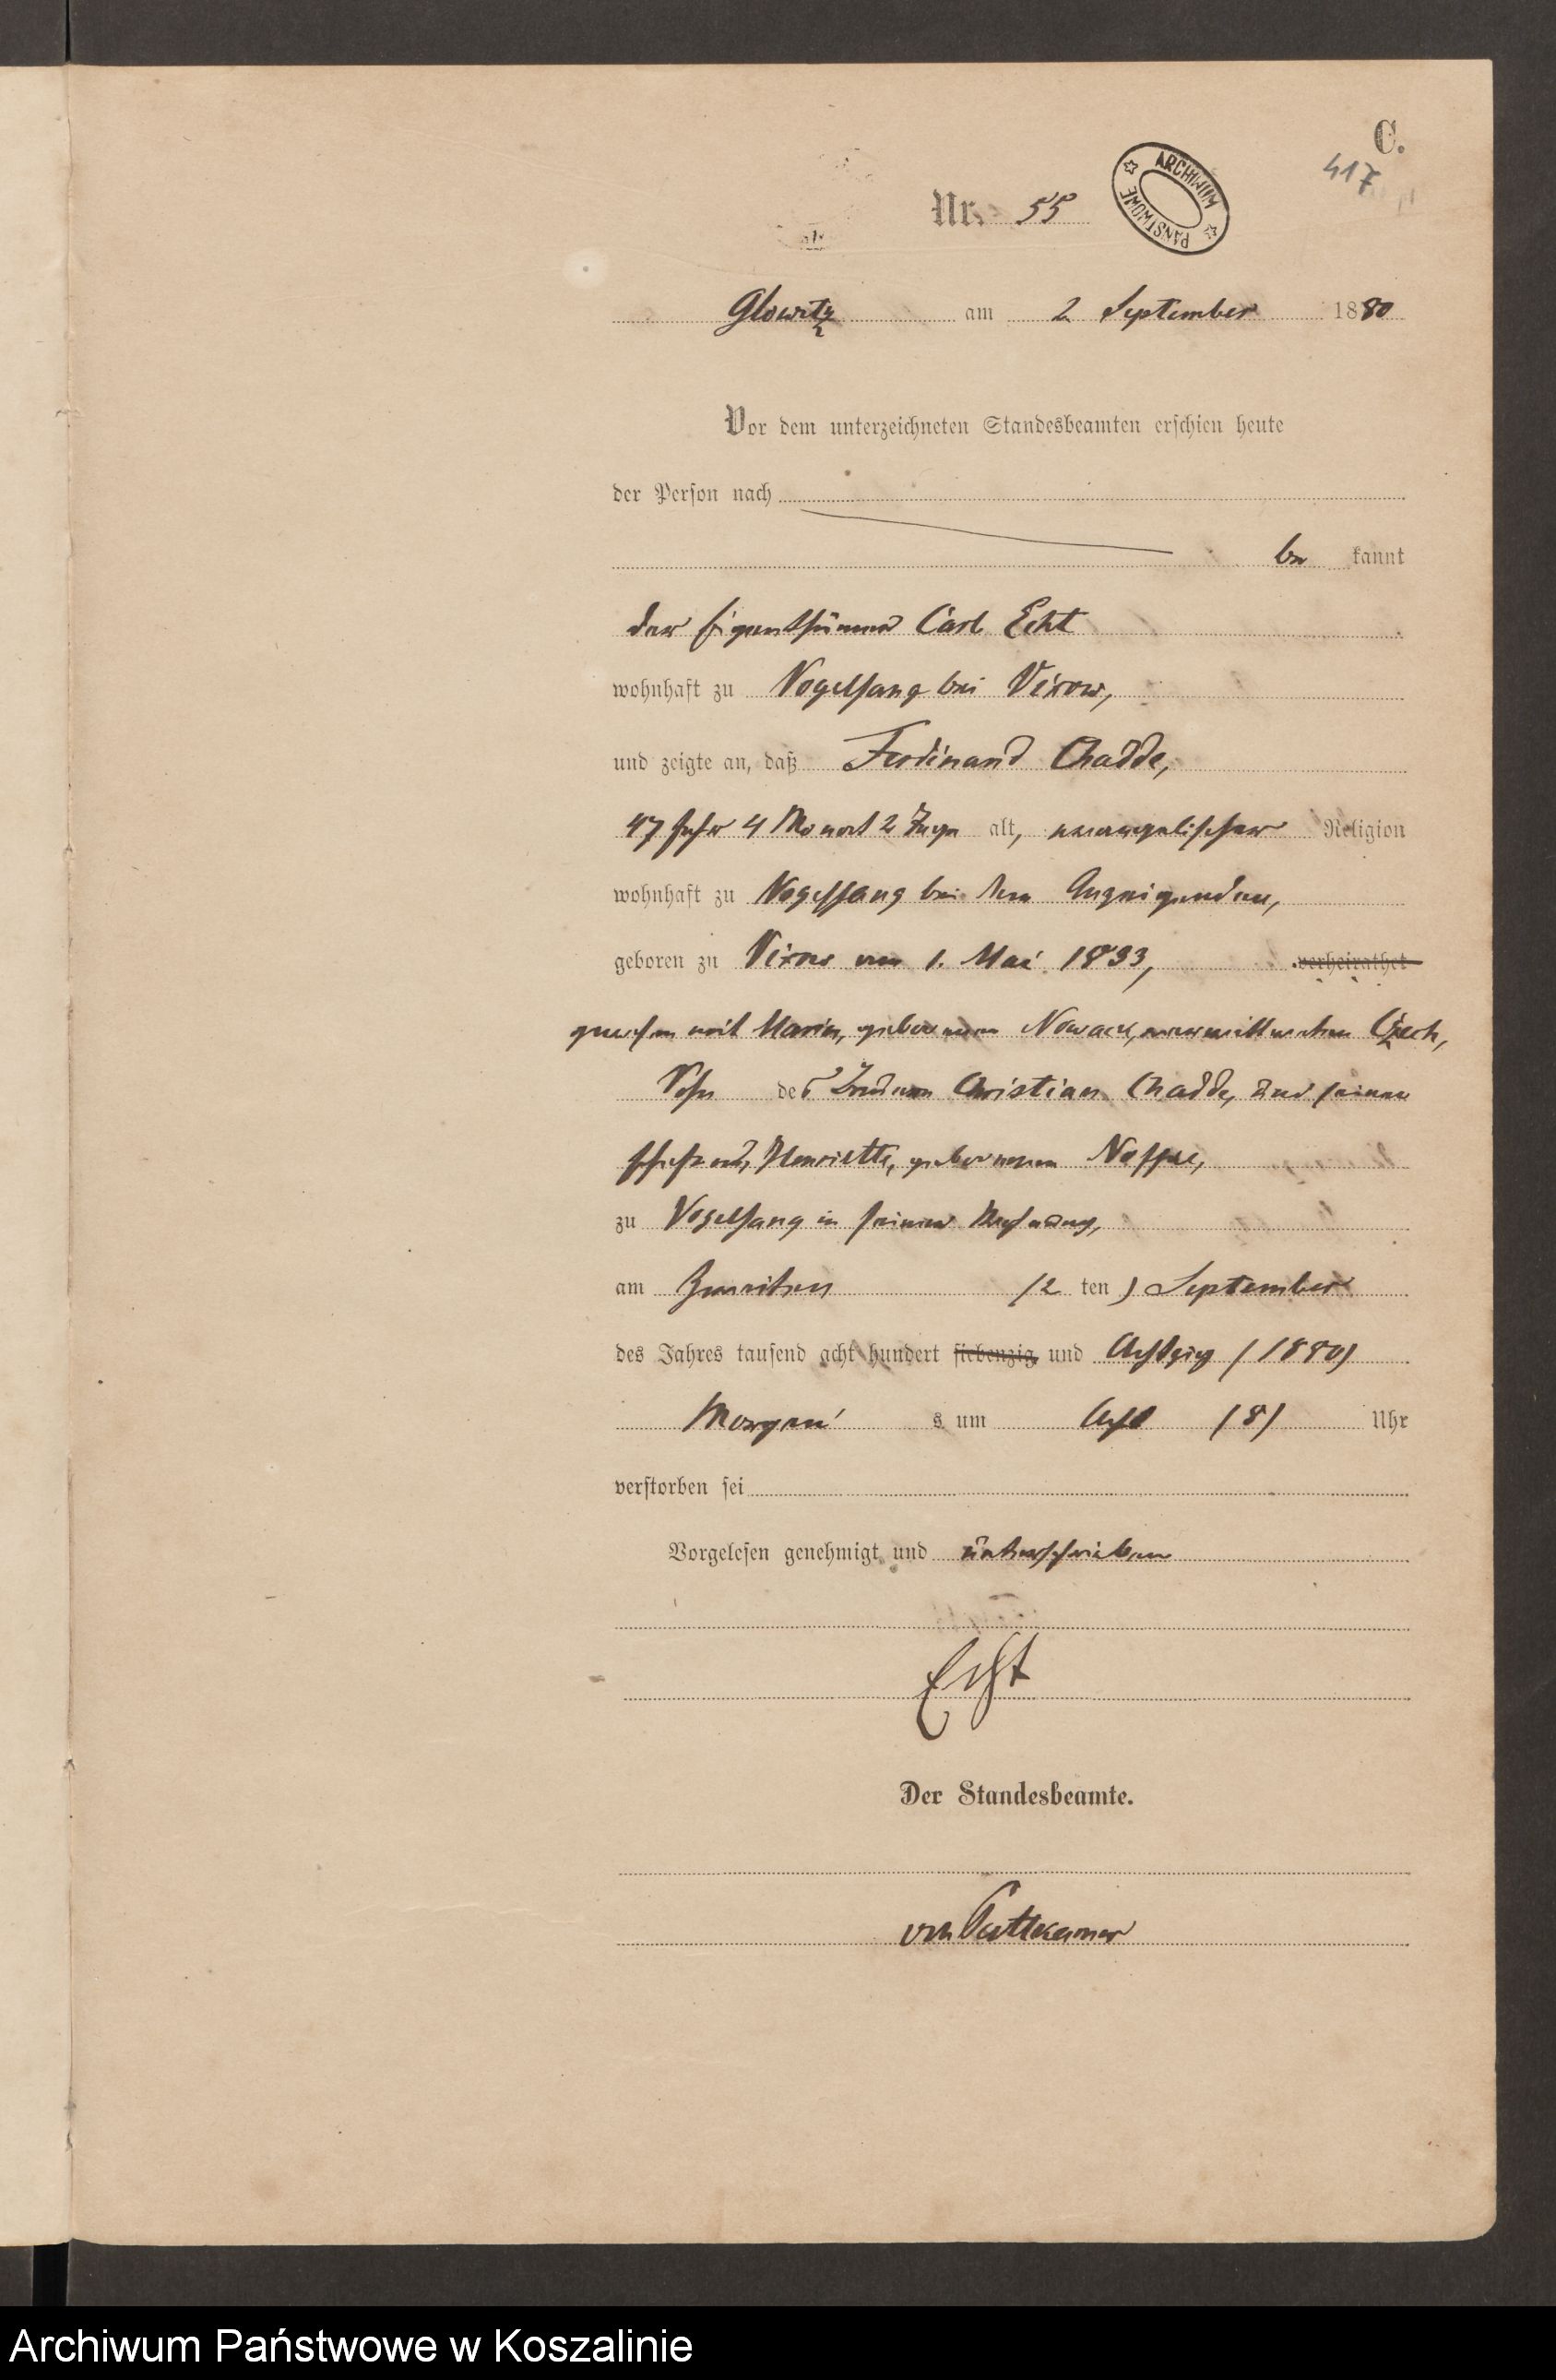 C.
417
Nr. 55
ARCHIWUM PAŃSTWOWE
Glowitz am 2 September 1880
Vor dem unterzeichneten Standesbeamten erschien heute
der Person nach
be kannt
der Eigenthümer Carl Echt
wohnhaft zu Vogelsang bei Vixow,
und zeigte an, daß Ferdinand Chadde,
47 Jahr 4 Monat 2 Tage alt, evangelischer Religion
wohnhaft zu Vogelsang bei dem Anzeigenden,
geboren zu Vixow am 1. Mai 1833, verheirathet
gewesen mit Marie, geborenen Nowack, verwittweten Czech,
Sohn des Christian Chadde, und seiner
Ehefrau, Henriette, geborenen
zu Vogelsang in seiner Wohnung,
am Zweiten (2 ten) September
des Jahres tausend acht hundert siebenzig und Achtzig (1880)
Morgen s um Acht (8) Uhr
verstorben sei
Vorgelesen genehmigt und unterschrieben
Echt
Der Standesbeamte.
von Puttkamer
Archiwum Państwowe w Koszalinie